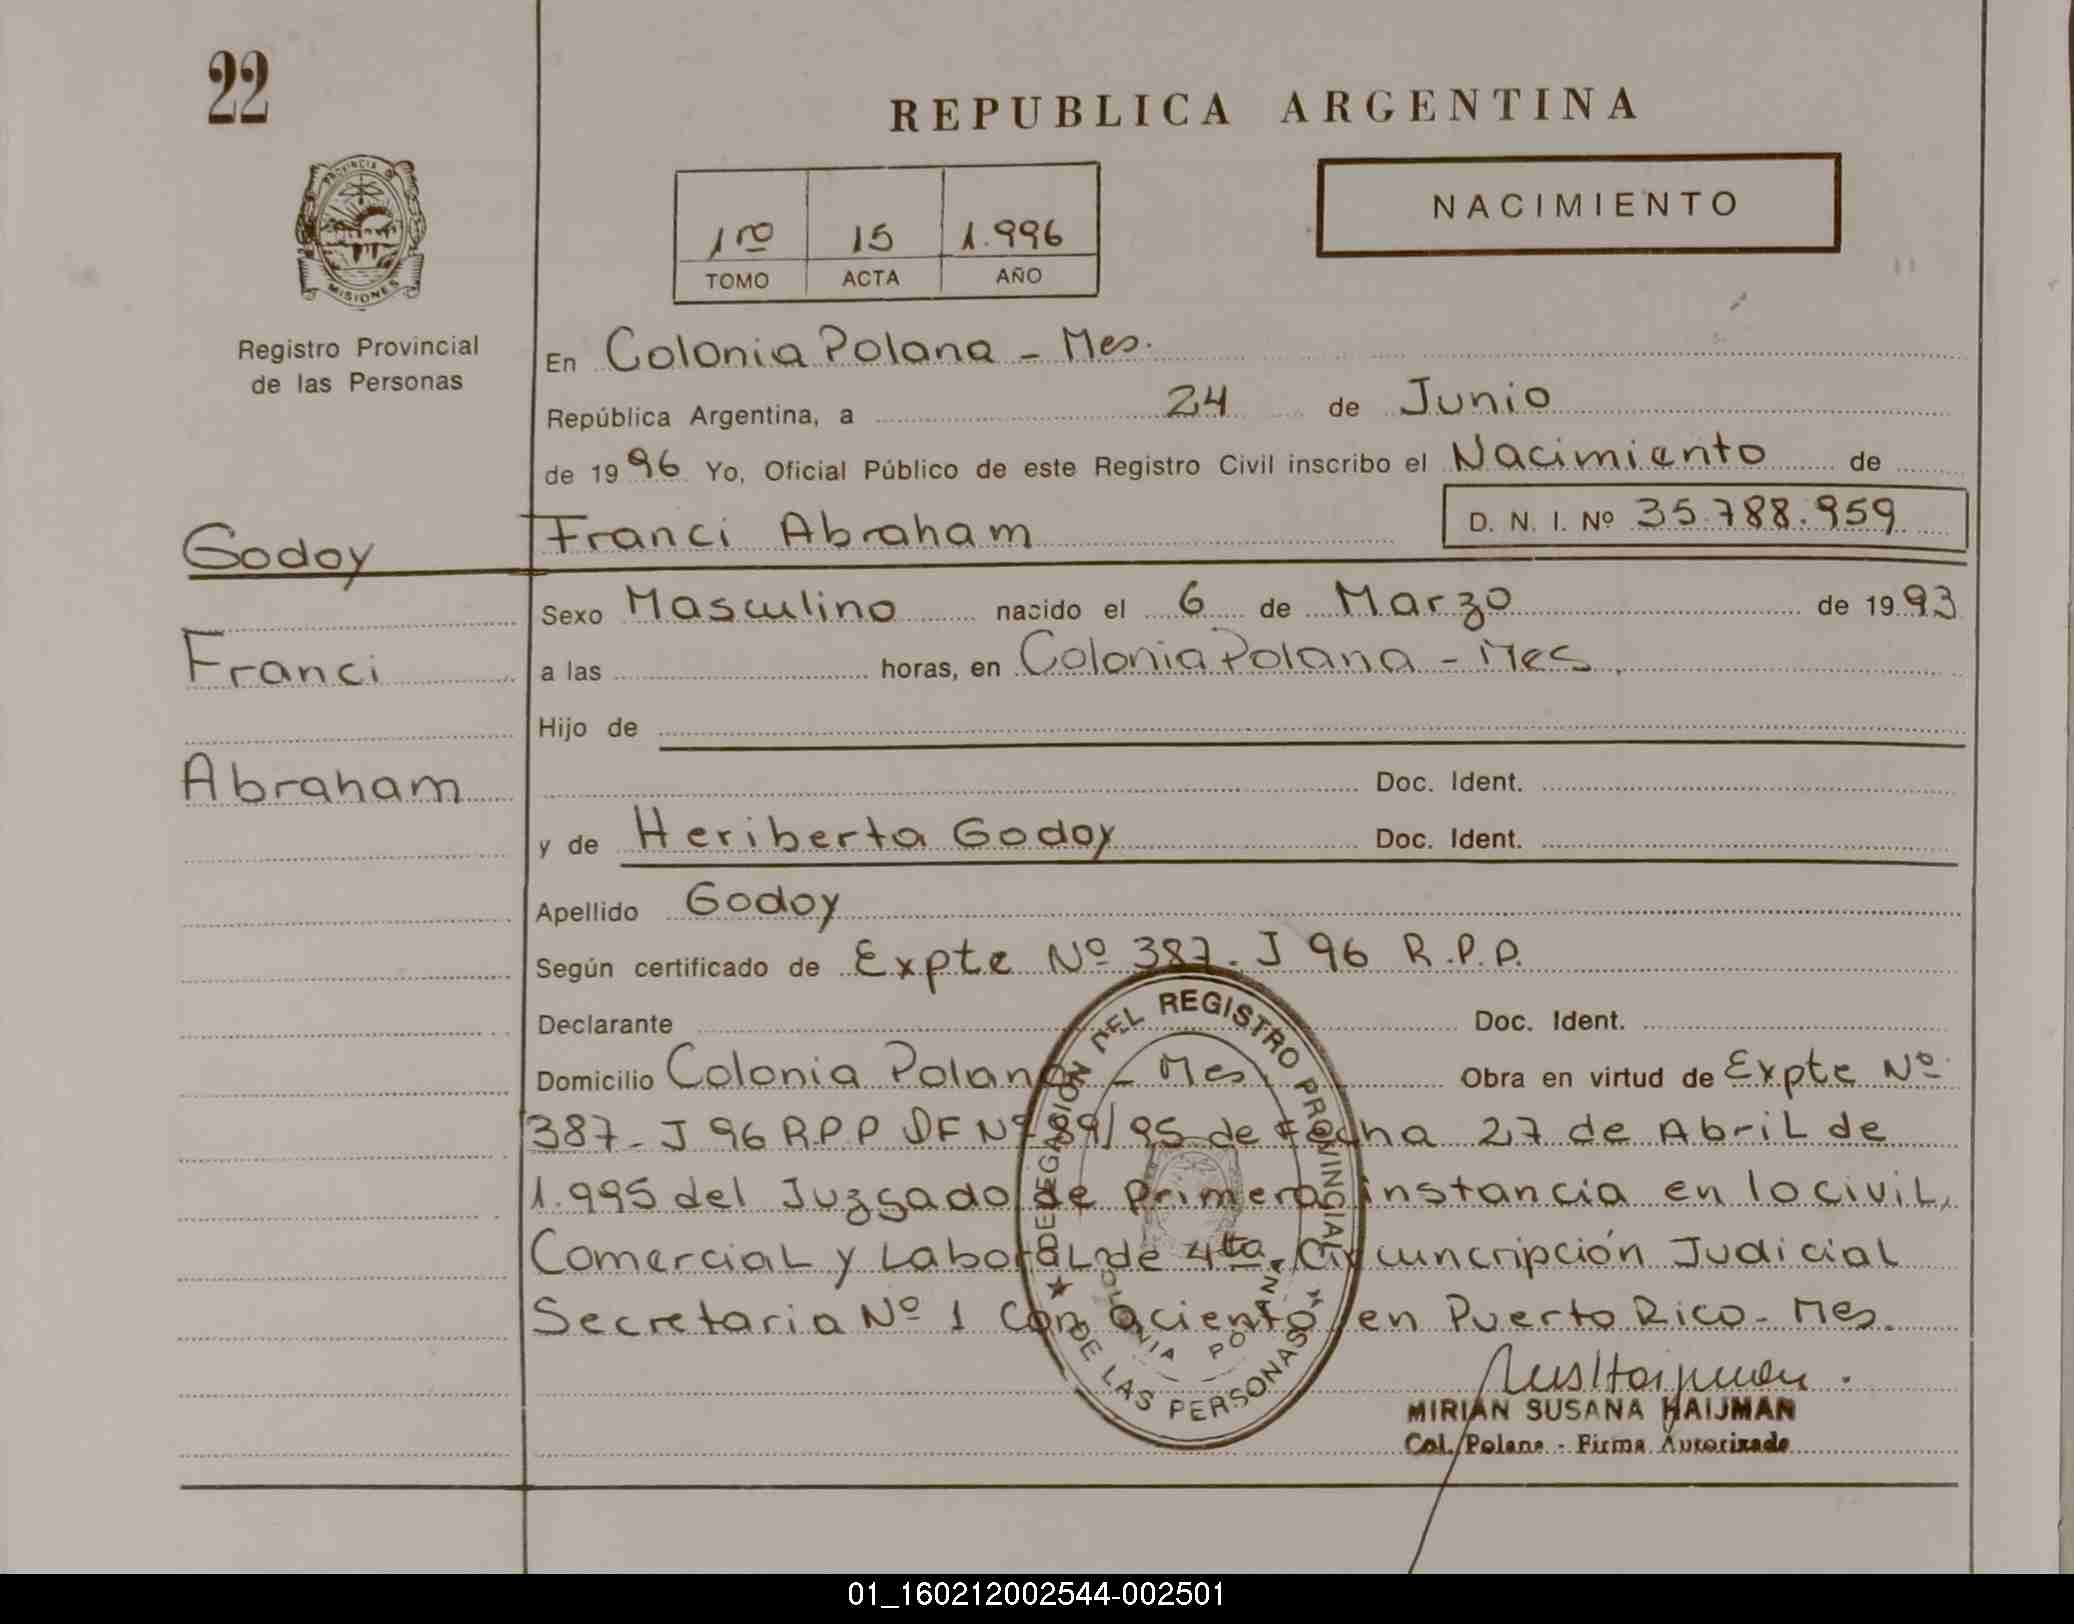 22
REPUBLICA ARGENTINA
PROVINCIA D
MISIONES
NACIMIENTO
1ro 15 1.996
TOMO ACTA AÑO
Registro Provincial
de las Personas
En Colonia Polana - Mes.
República Argentina, a 24 de Junio
de 1996 Yo, Oficial Público de este Registro Civil inscribo el Nacimiento de
Godoy Franci Abraham D. N. I. Nº 35.788.959
Sexo Masculino nacido el 6 de Marzo de 1993
Franci a las horas, en Colonia Polana - Mes
Hijo de
Abraham Doc. Ident.
y de Heriberta Godoy Doc. Ident.
Apellido Godoy
Según certificado de Expte Nº 387. J 96 R.P.P.
Declarante Doc. Ident.
Domicilio Colonia Polana - Mes. Obra en virtud de Expte Nº
387- J 96 R.P.P DF Nº 89/95 de fecha 27 de AbriL de
1.995 del Juzgado de primera instancia en lo civiL,
ComerciaL y LaboraL de 4ta. Circuncripción JudiciaL
Secretaria Nº 1 con aciento en Puerto Rico- Mes.
DELEGASION DEL REGISTRO PROVINCIAL
★ DE LAS PERSONAS ★
COLONIA POLANA
MIRIAN SUSANA HAIJMAN
Col. Polana - Firma Autorizada
01_160212002544-002501